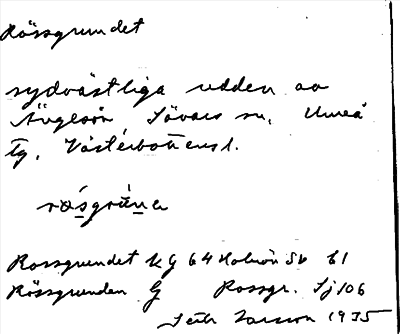 Rössgrundet
sydvästliga udden av
Ängesön Sävars sn, Umeå
tg, Västerbottens l.
røsgrùna
Rossgrundet KG 64 Holmön SV E1
Rössgrunden G Rossgr. Sj 106
Larsson 1935